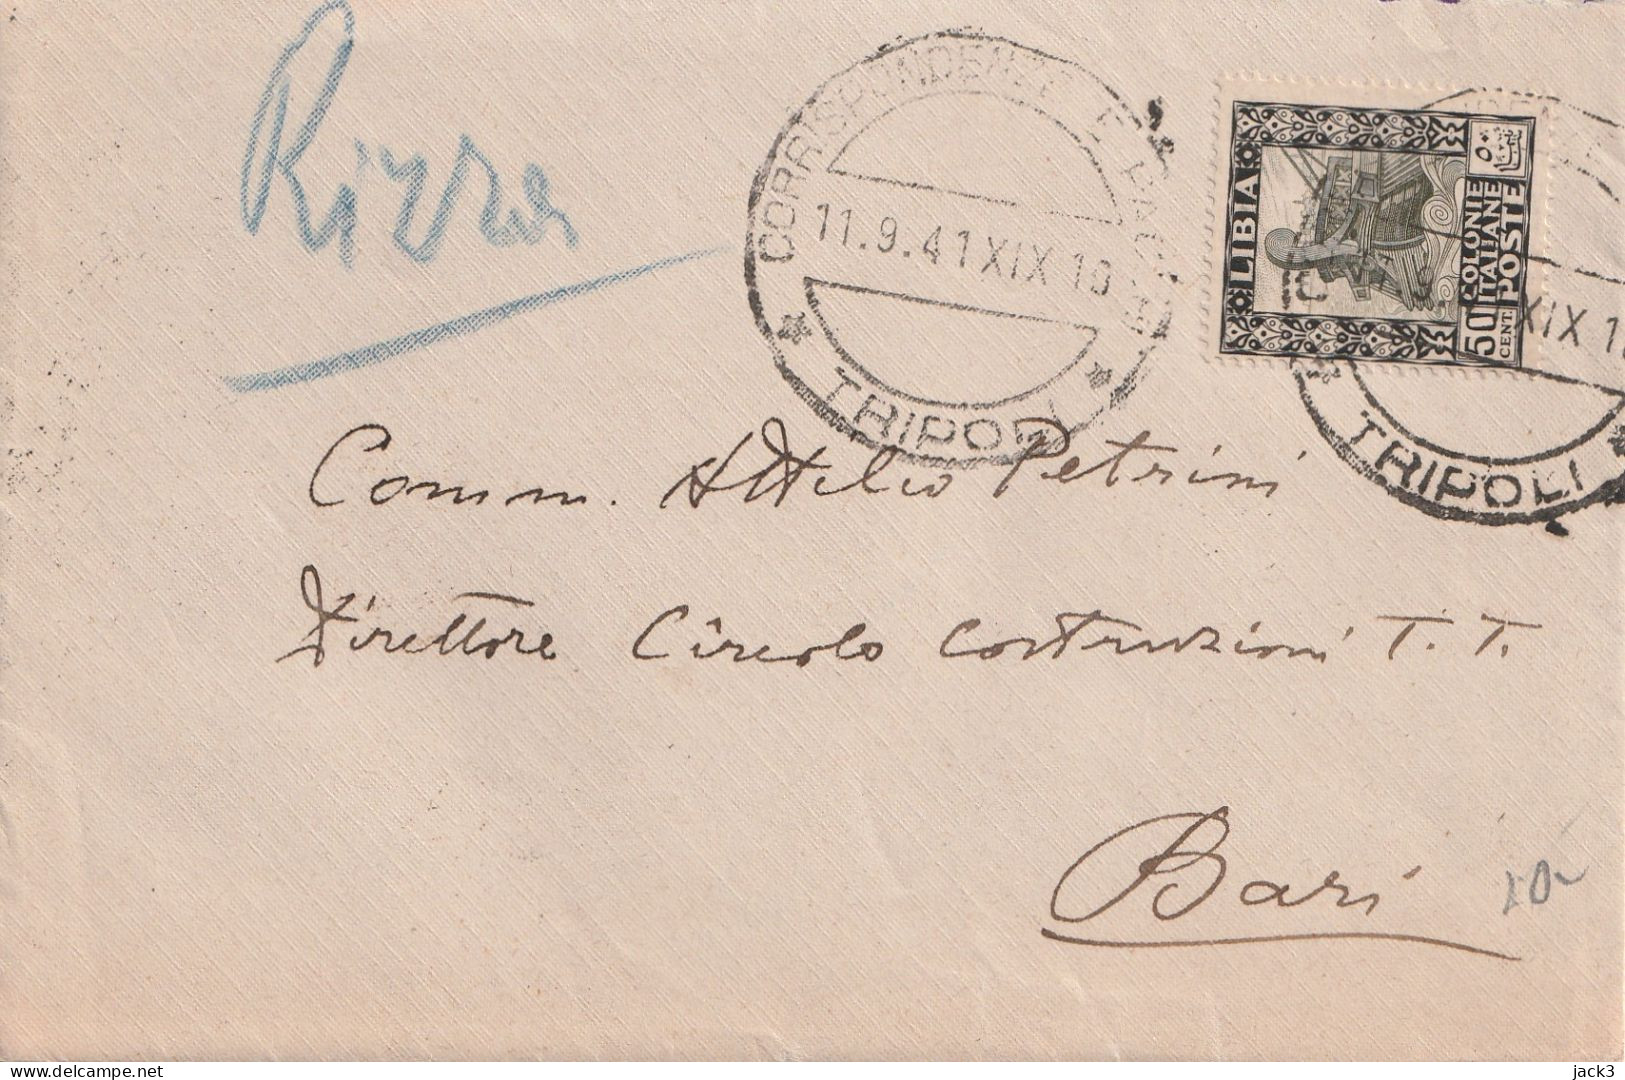 CORRISPONDENZE E PACCHI
11.9.41 XIX 19
TRIPOLI
LIBIA
COLONIE
ITALIANE
POSTE
50
CENT.
XIX 1
TRIPOLI
Comm. Attilio Petrini
Direttore Circolo Costruzioni T. T.
Bari
10
delcampe.net
jack3